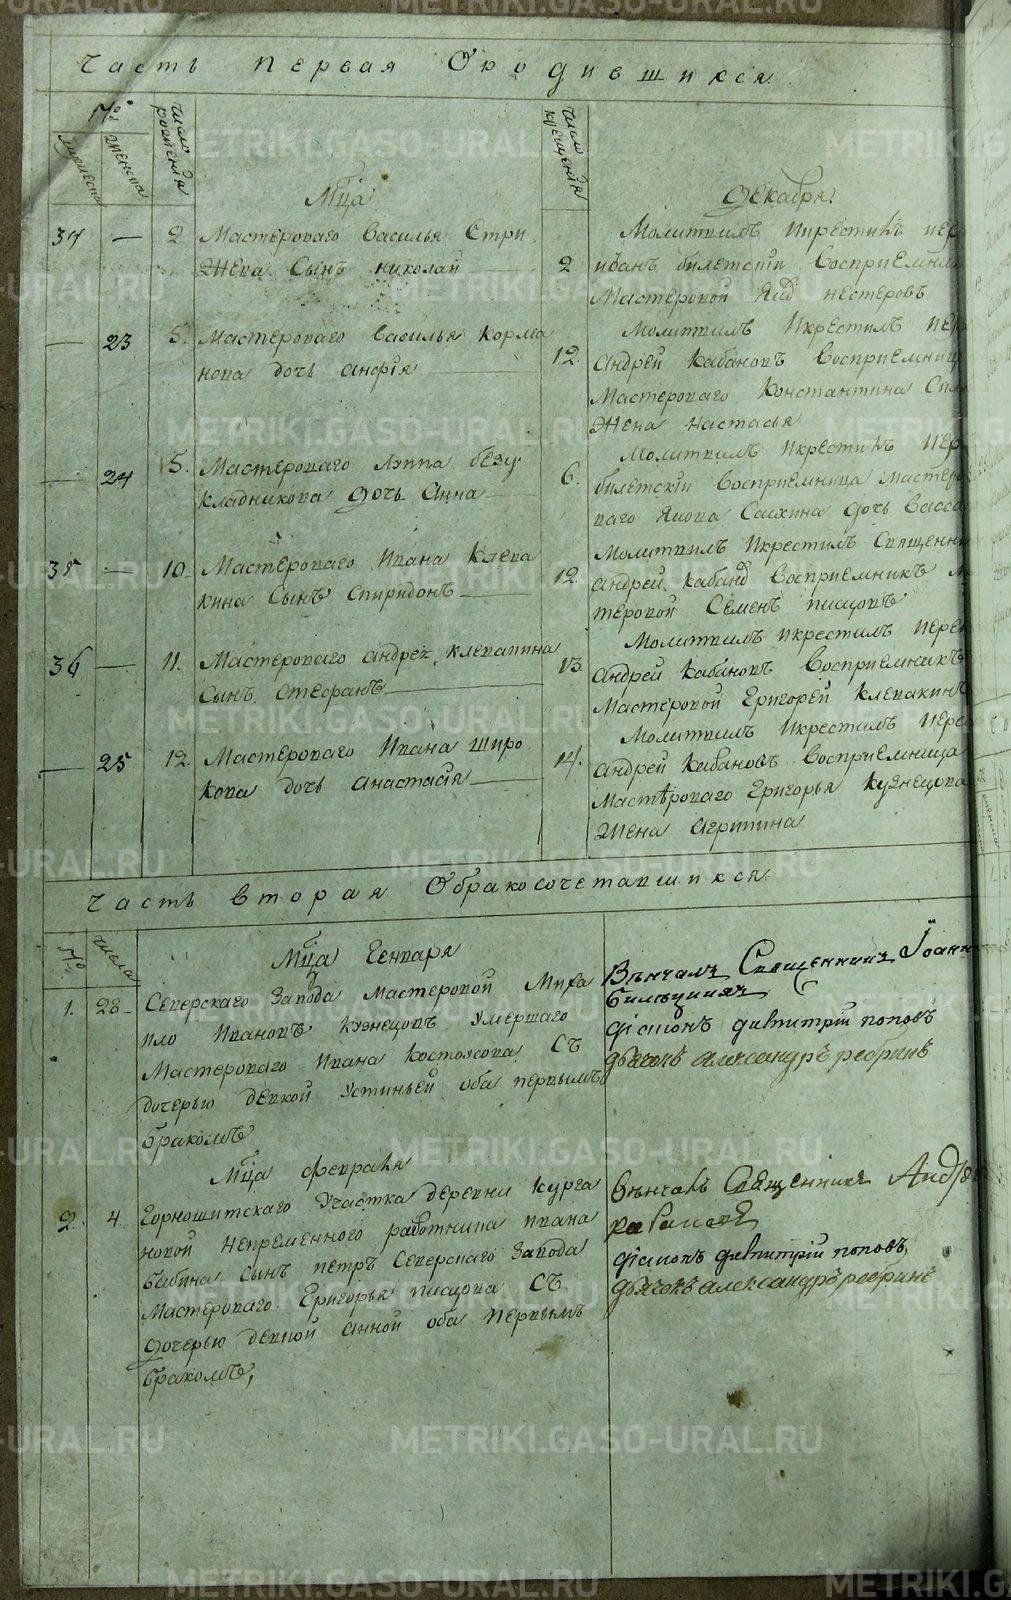 Часть первая Ородившихся
№
мужеска
женска
число рожденїя
число крещенїя
Мца Декабря
34 — 2 Мастероваго василья Стри
жева Сынъ николай
2 Молитвилъ Икрестилъ
иванъ билетскій Восприемник
Мастеровой нестеровъ
— 23 5. Мастероваго василья Корма
нова дочь анфія
12. Молитвилъ Икрестилъ
андрей Кабановъ Восприемница
Мастероваго Константина
Жена настасья
— 24 5. Мастероваго безу
кладникова дочь анна
6. Молитвилъ Икрестилъ
билетскій Восприемница мастеро
ваго дочь васса
35 — 10 Мастероваго Ивана Клева
кина Сынъ Спиридонъ
12. Молитвилъ Икрестилъ Священни
андрей Кабанов Восприемникъ
теровой Семенъ писцовъ
36 — 11. Мастероваго андрея клевакина
Сынъ Стефанъ
13. Молитвилъ Икрестилъ
андрей Кабановъ Восприемникъ
Мастеровой Григорей Клевакинъ
— 25 12. Мастероваго Ивана широ
кова дочь анастасія
14. Молитвилъ Икрестилъ
андрей Кабановъ Восприемница
Мастероваго григорья Кузнецова
Жена агрипина
Часть вторая Обракосочетавшихся
№
числа
Мца Генваря
1. 28 Северскаго Завода Мастеровой Миха
ило Ивановъ Кузнецовъ умершаго
Мастероваго Ивана Костоусова Съ
дочерью девкой Устиньей оба первымъ
бракомъ
Вѣнчалъ Священникъ Іоаннъ
Билѣцкий
діаконъ димитрій поповъ
дьячокъ александръ ребринъ
Мца февраля
2. 4. Горнощитскаго Участка деревни Курга
новой непременного работника ивана
бабина Сынъ петръ Северскаго Завода
Мастероваго Григорья писцова Съ
дочерью девкой анной оба первымъ
бракомъ,
вѣнчалъ Священникъ Андрей
кабановъ
діаконъ димитрій поповъ
дьячокъ александръ ребринъ
METRIKI.GASO-URAL.RU